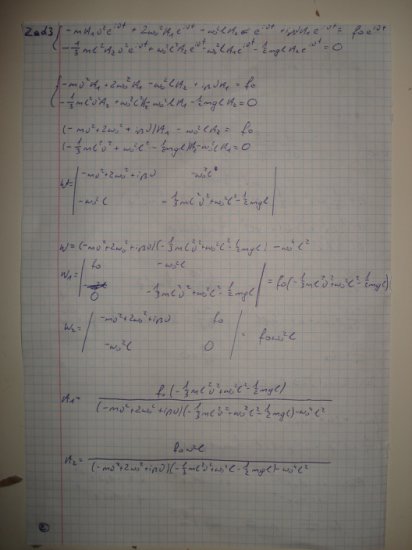 Zad3 { -mA₁υ²e^{iυt} + 2ω₀²A₁e^{iυt} - ω₀²lA₂e^{iυt} + iβυA₁e^{iυt} = f₀e^{iυt}
-1/3ml²A₂υ²e^{iυt} + ω₀²l²A₂e^{iυt} - ω₀²lA₁e^{iυt} - 1/2mglA₂e^{iυt} = 0
{ -mυ²A₁ + 2ω₀²A₁ - ω₀²lA₂ + iβυA₁ = f₀
-1/3ml²υ²A₂ + ω₀²l²A₂ - ω₀²lA₁ - 1/2mglA₂ = 0
(-mυ² + 2ω₀² + iβυ)A₁ - ω₀²lA₂ = f₀
(-1/3ml²υ² + ω₀²l² - 1/2mgl)A₂ - ω₀²lA₁ = 0
W = | -mυ² + 2ω₀² + iβυ -ω₀²l |
| -ω₀²l -1/3ml²υ² + ω₀²l² - 1/2mgl |
W = (-mυ² + 2ω₀² + iβυ)(-1/3ml²υ² + ω₀²l² - 1/2mgl) - ω₀²l²
W₁ = | f₀ -ω₀²l |
| 0 -1/3ml²υ² + ω₀²l² - 1/2mgl | = f₀(-1/3ml²υ² + ω₀²l² - 1/2mgl)
W₂ = | -mυ² + 2ω₀² + iβυ f₀ |
| -ω₀²l 0 | = f₀ω₀²l
A₁ = f₀(-1/3ml²υ² + ω₀²l² - 1/2mgl)
(-mυ² + 2ω₀² + iβυ)(-1/3ml²υ² + ω₀²l² - 1/2mgl) - ω₀²l²
A₂ = f₀ω₀²l
(-mυ² + 2ω₀² + iβυ)(-1/3ml²υ² + ω₀²l - 1/2mgl) - ω₀²l²